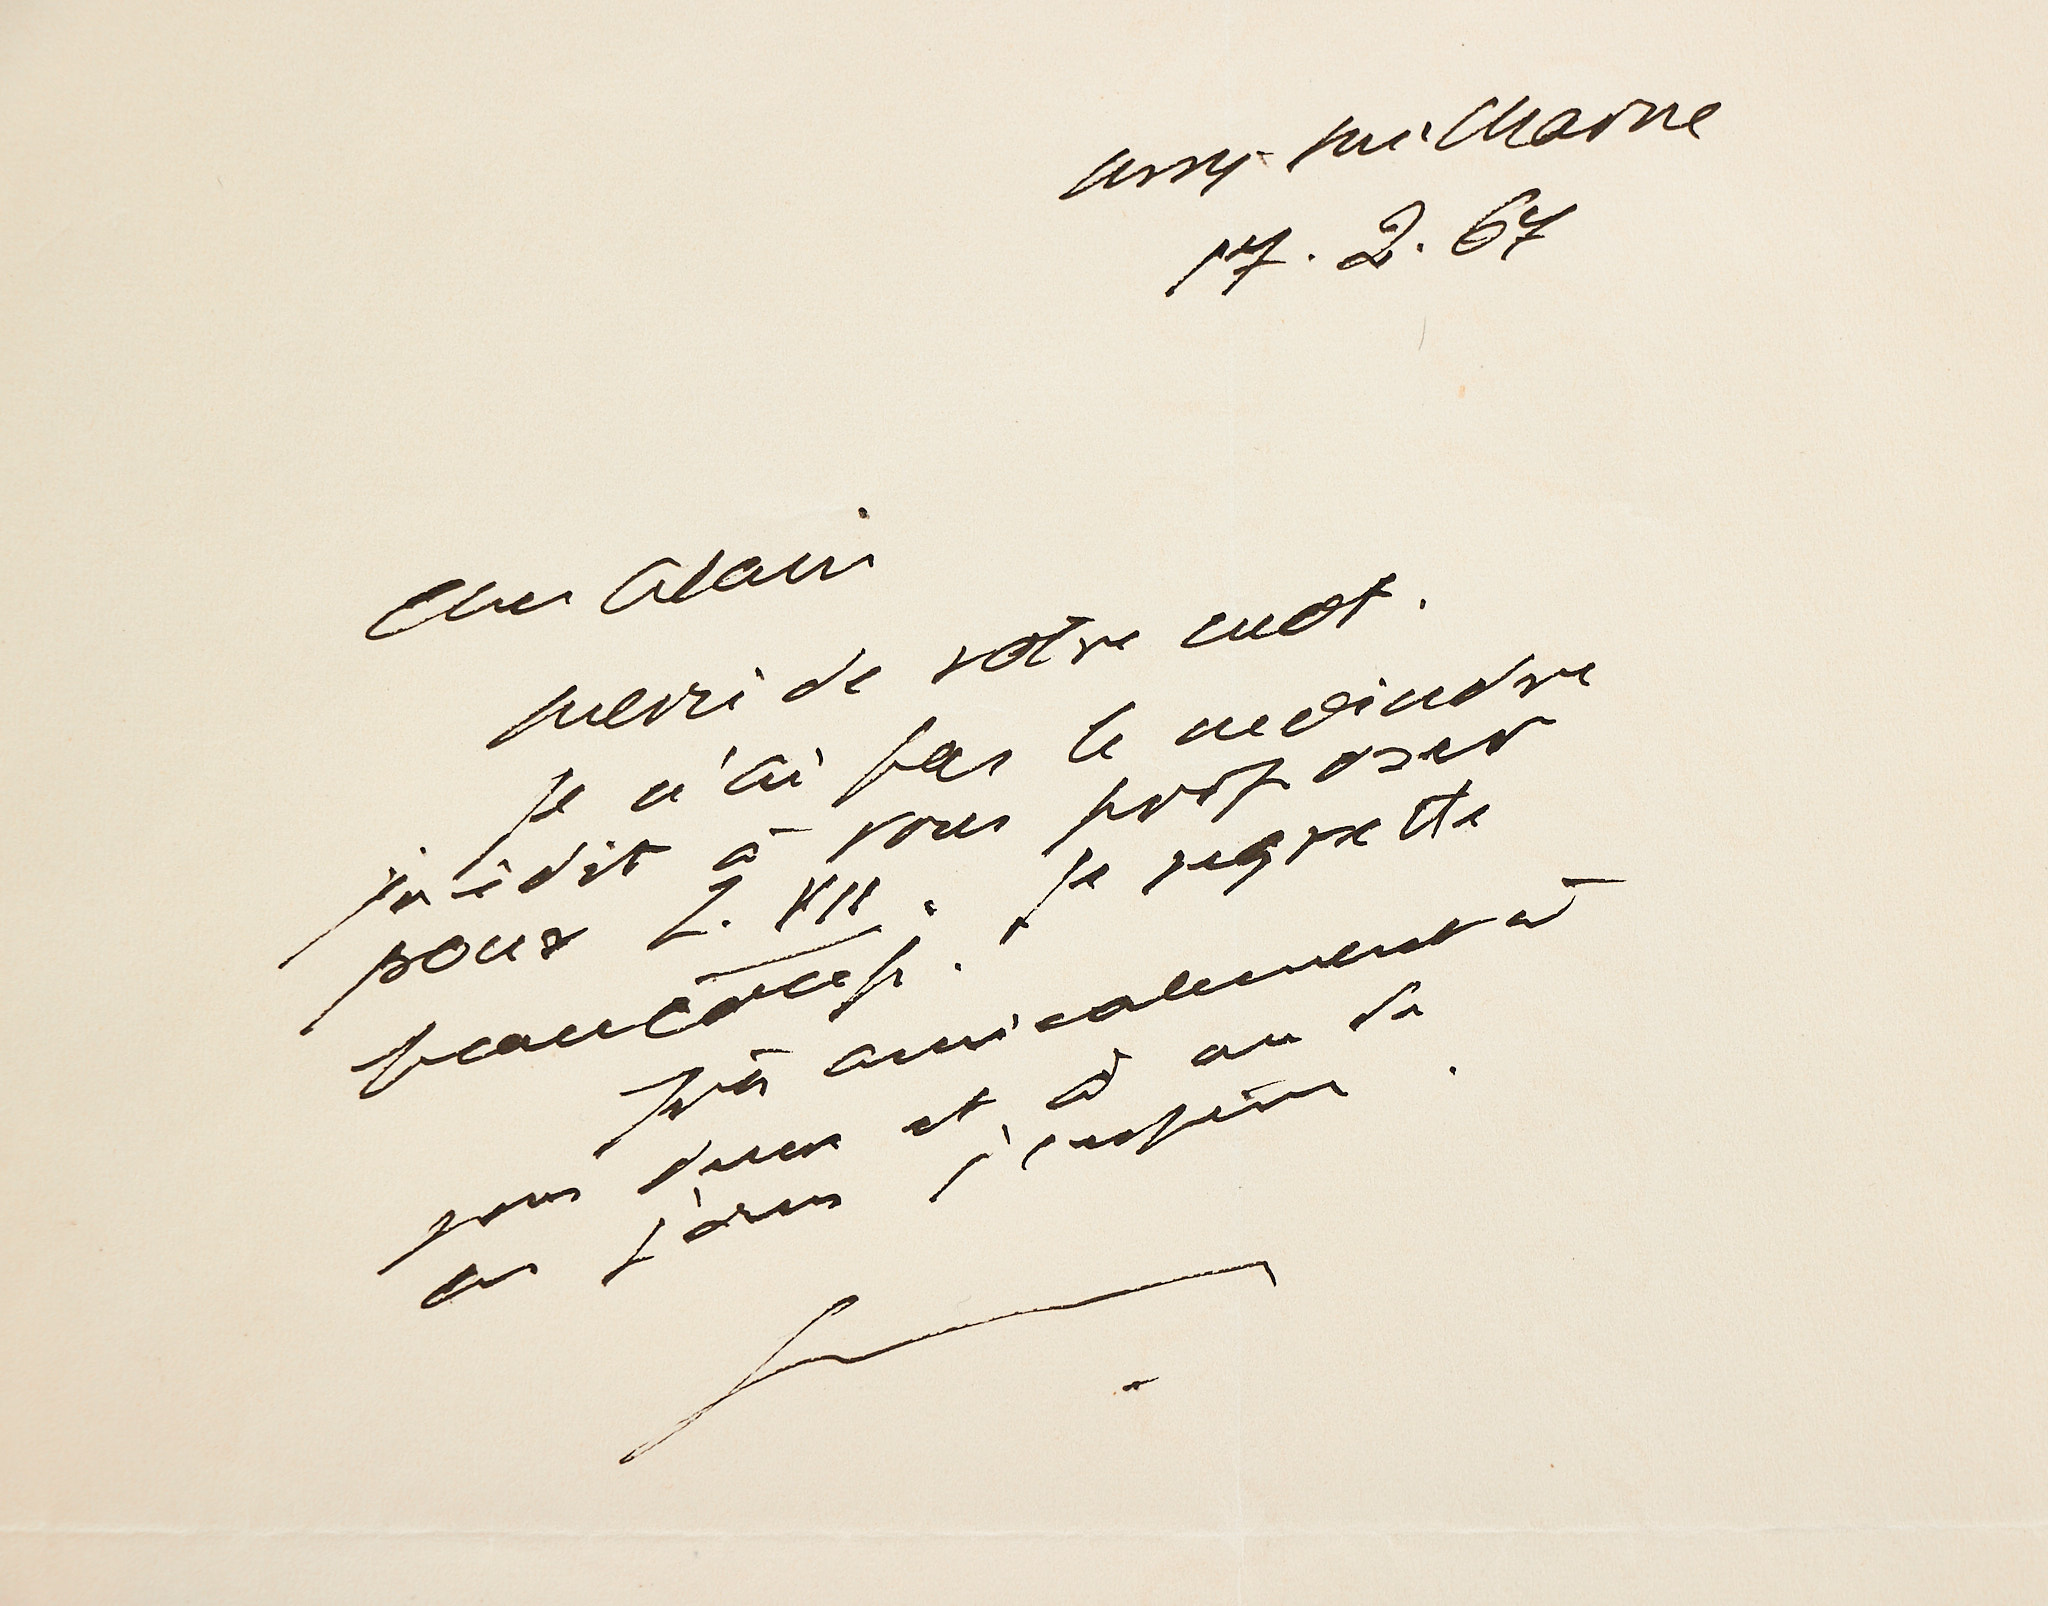 Ussy sur Marne
17. 2. 67
Cher Alain
merci de votre mot.
Je n'ai pas le moindre
inédit à vous proposer
pour L. VII. Je regrette
beaucoup.
Très amicalement à
vous deux et à un de
ces jours j'espère.